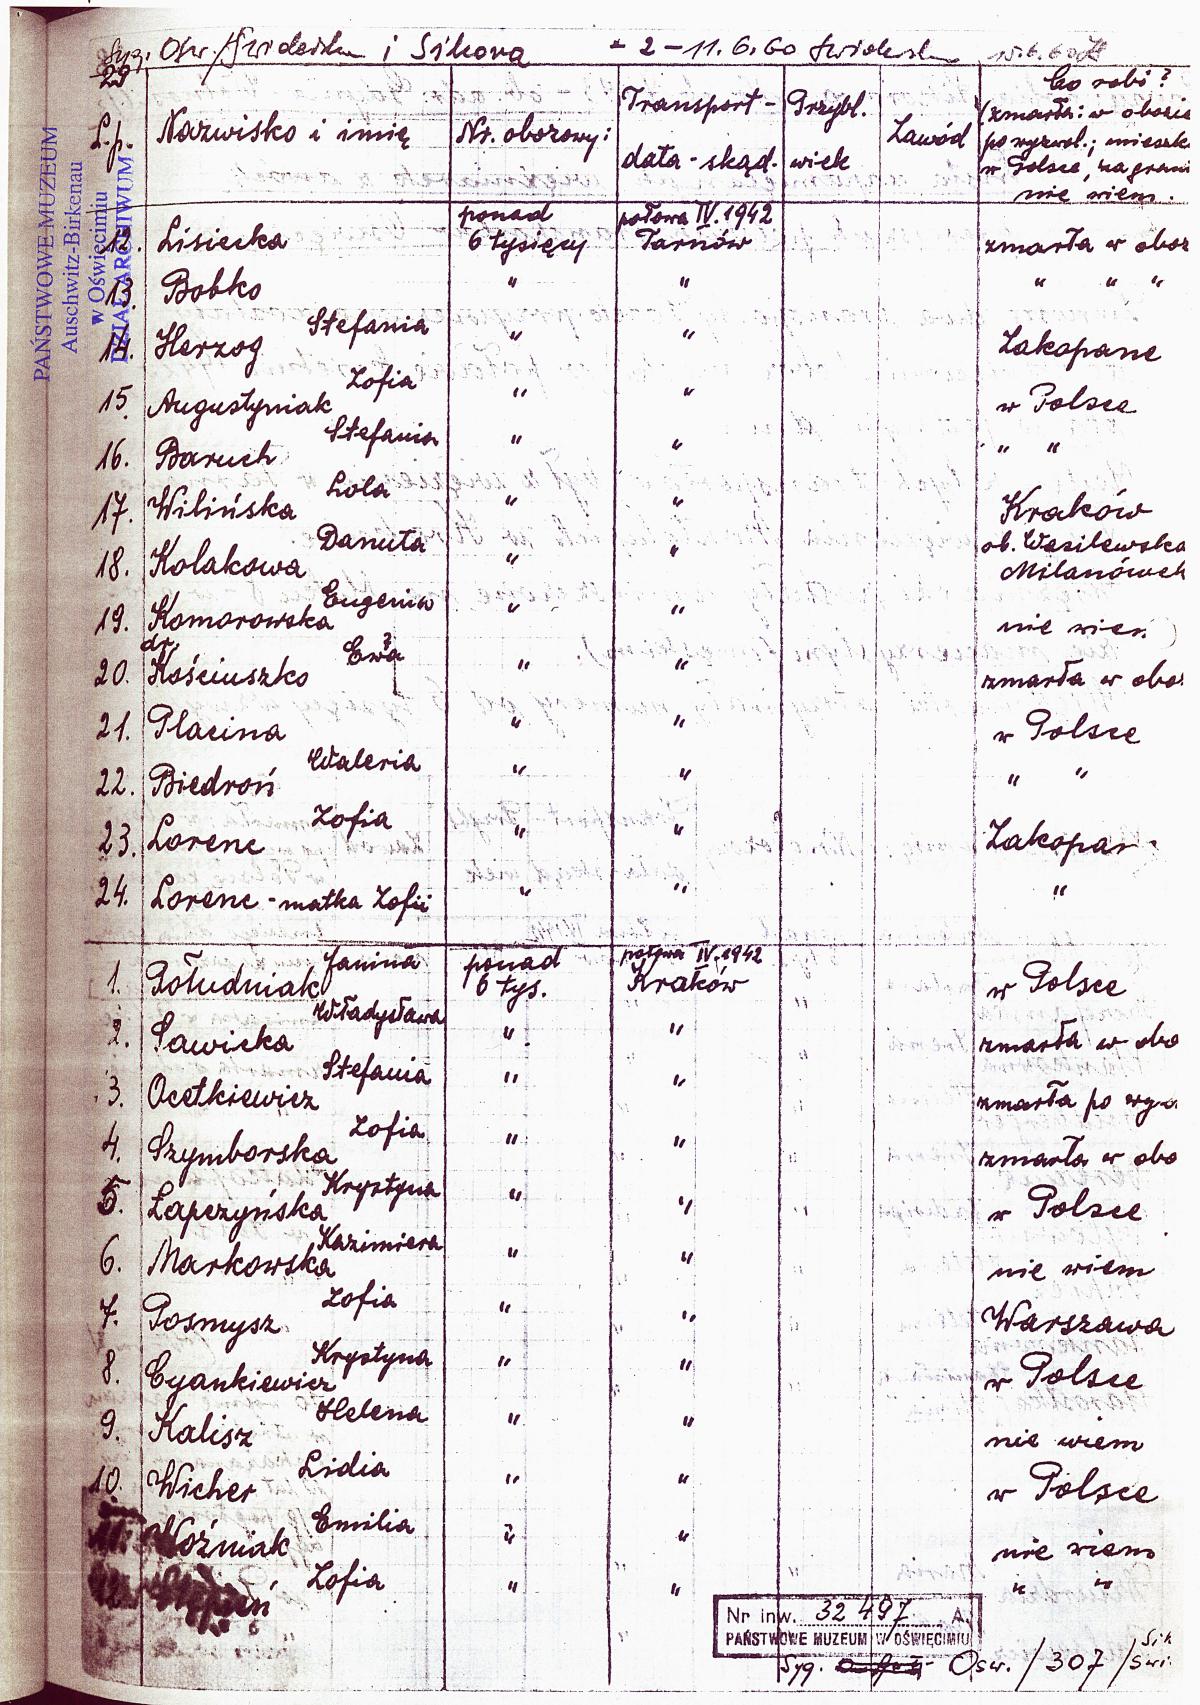 Syg. Osw./Swiderska i Sikora - 2 - 11.6.60
29
L.p. Nazwisko i imię Nr. obozowy: Transport - data - skąd. Przybl. wiek Zawód Co robi? (zmarła: w obozie po wyzwol.; mieszk. w Polsce, zagrani nie wiem.
12. Lisiecka ponad 6 tysięcy połowa IV.1942 Tarnów zmarła w oboz
13. Bobko " " " " "
14. Herzog Stefania " " Zakopane
15. Augustyniak Zofia " " w Polsce
16. Baruch Stefania " " " "
17. Wilińska Lola " " Kraków
18. Kolakowa Danuta " " ob. Wasilewska Milanówek
19. Komorowska Eugenia " " nie wiem
20. dr. Kościuszko Ewa? " " zmarła w obo
21. Placina " " w Polsce
22. Biedroń Waleria " " " "
23. Lorenc Zofia " " Zakopan
24. Lorenc - matka Zofii " " "
1. Południak Janina ponad 6 tys. połowa IV.1942 Kraków w Polsce
2. Sawicka Władysława " " zmarła w obo
3. Ocetkiewicz Stefania " " zmarła po wy
4. Szymborska Zofia " " zmarła w obo
5. Łapczyńska Krystyna " " w Polsce
6. Markowska Kazimiera " " nie wiem
7. Posmysz Zofia " " Warszawa
8. Cyankiewicz Krystyna " " w Polsce
9. Kalisz Helena " " nie wiem
10. Wicher Lidia " " w Polsce
11. Woźniak Emilia " " nie wiem
12. Zofia " " " "
Nr inw. 32 497 A.
PAŃSTWOWE MUZEUM W OŚWIĘCIMIU
Syg. Osw. / 307 /
PAŃSTWOWE MUZEUM
Auschwitz-Birkenau
w Oświęcimiu
DZIAŁ ARCHIWUM